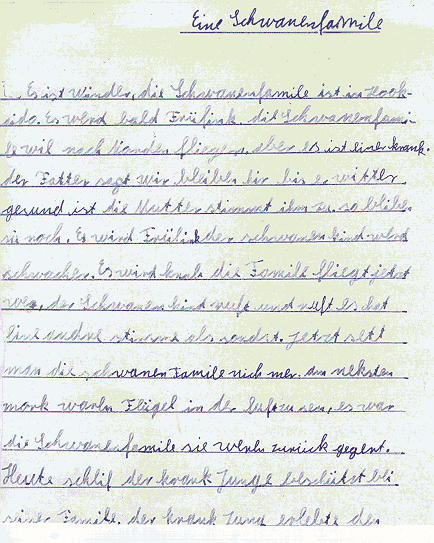 Eine Schwanenfarmile
Es ist Winder, die Schwanenfamile ist in Hook-
eido. Es werd bald Früfink. die Schwanenfami-
le wil nach Norden fliegen, aber es ist einer krank.
der Fatter sagt wir bleiben hir bis er witter
gesund ist die Mutter stimmt ihm zu. so blibe
sie noch. Es wird Frülink der schwanen kind werd
schwacher. Es wird knale die Famile fliegt jetzt
weg, der Schwanen kind ruft und ruft es hat
eine andre stimme als sondst. jetzt sett
man die schwanen Famile nich mer. am neksten
mork waren Flügel in der Luft zu sen, es war
die Schwanenfamile sie waren zurück gegent.
Heute schlif der krank Junge beschützt bei
seiner Famile. der krank Jung erlebte den